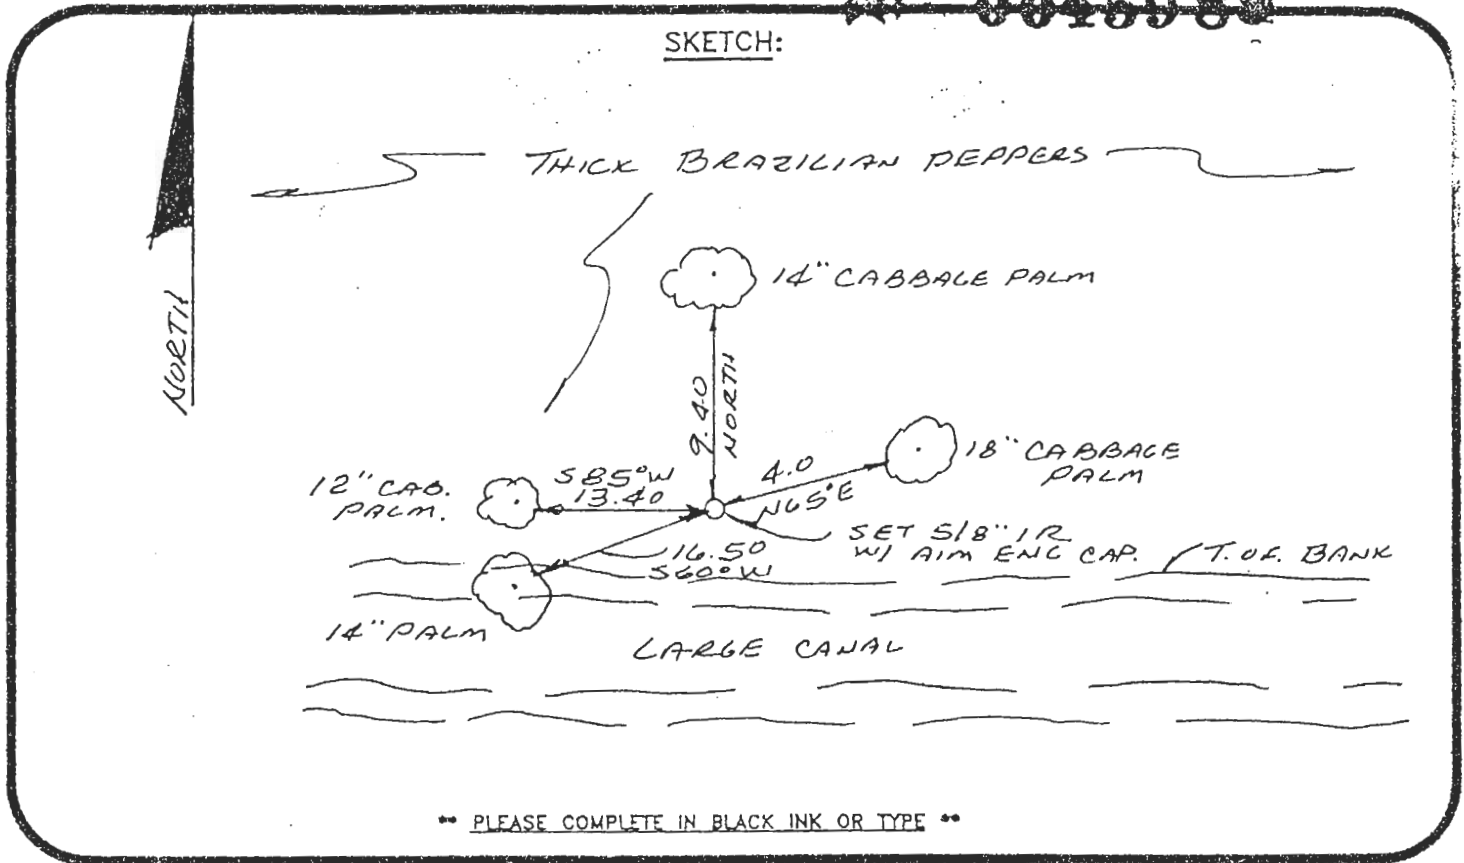 SKETCH:
THICK BRAZILIAN PEPPERS
NORTH
14" CABBAGE PALM
9.40
NORTH
18" CABBAGE
PALM
4.0
N65°E
12" CAB.
PALM.
S85°W
13.40
SET 5/8" IR
W/ AIM ENG CAP.
T. OF. BANK
16.50
S60°W
14" PALM
LARGE CANAL
** PLEASE COMPLETE IN BLACK INK OR TYPE **